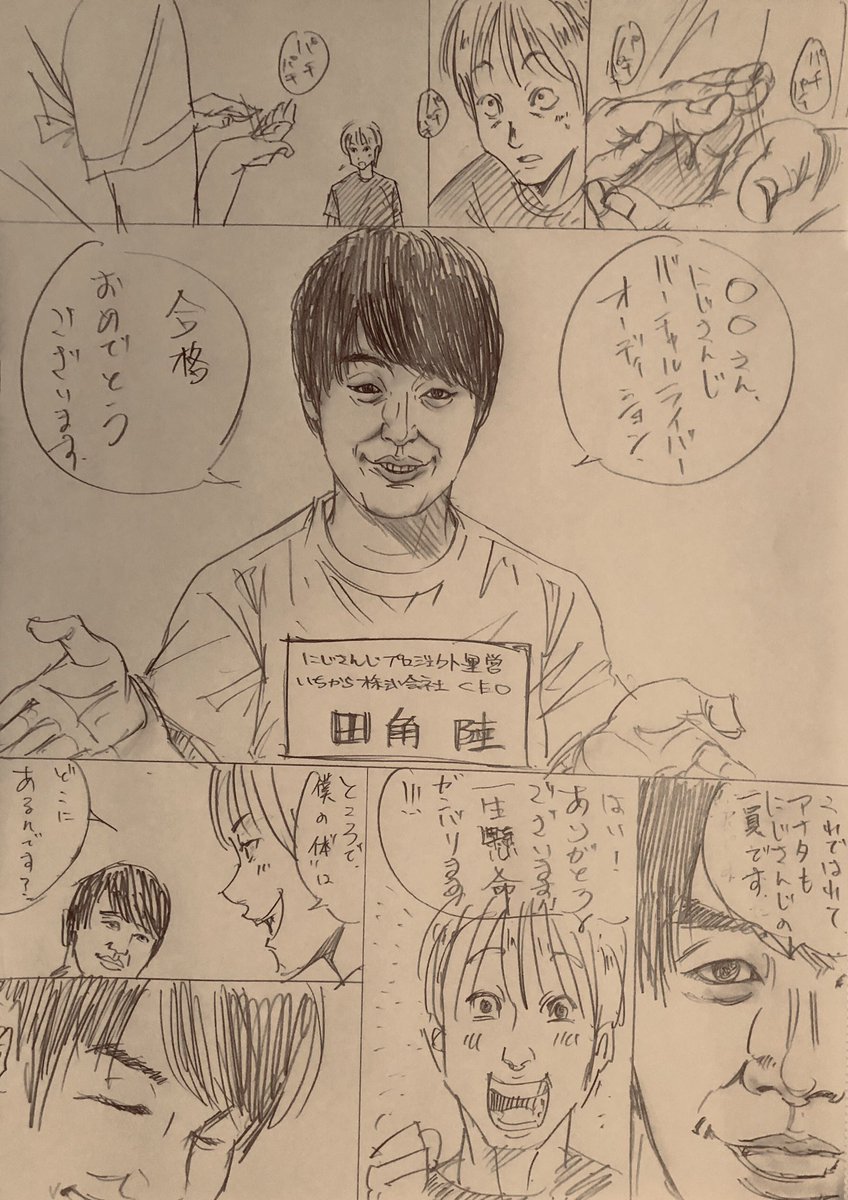 パチ
パチ
パチ
パチ
パチ
〇〇さん、
にじさんじ
バーチャルライバー
オーディション、
合格
おめでとう
ございます。
にじさんじプロジェクト運営
いちから株式会社 CEO
田角 陸
これではれて
アナタも
にじさんじの
一員です。
はい!
ありがとう
ございます
一生懸命
ガンバります
!!!
ところで、
僕の体は
どこに
あるんです?